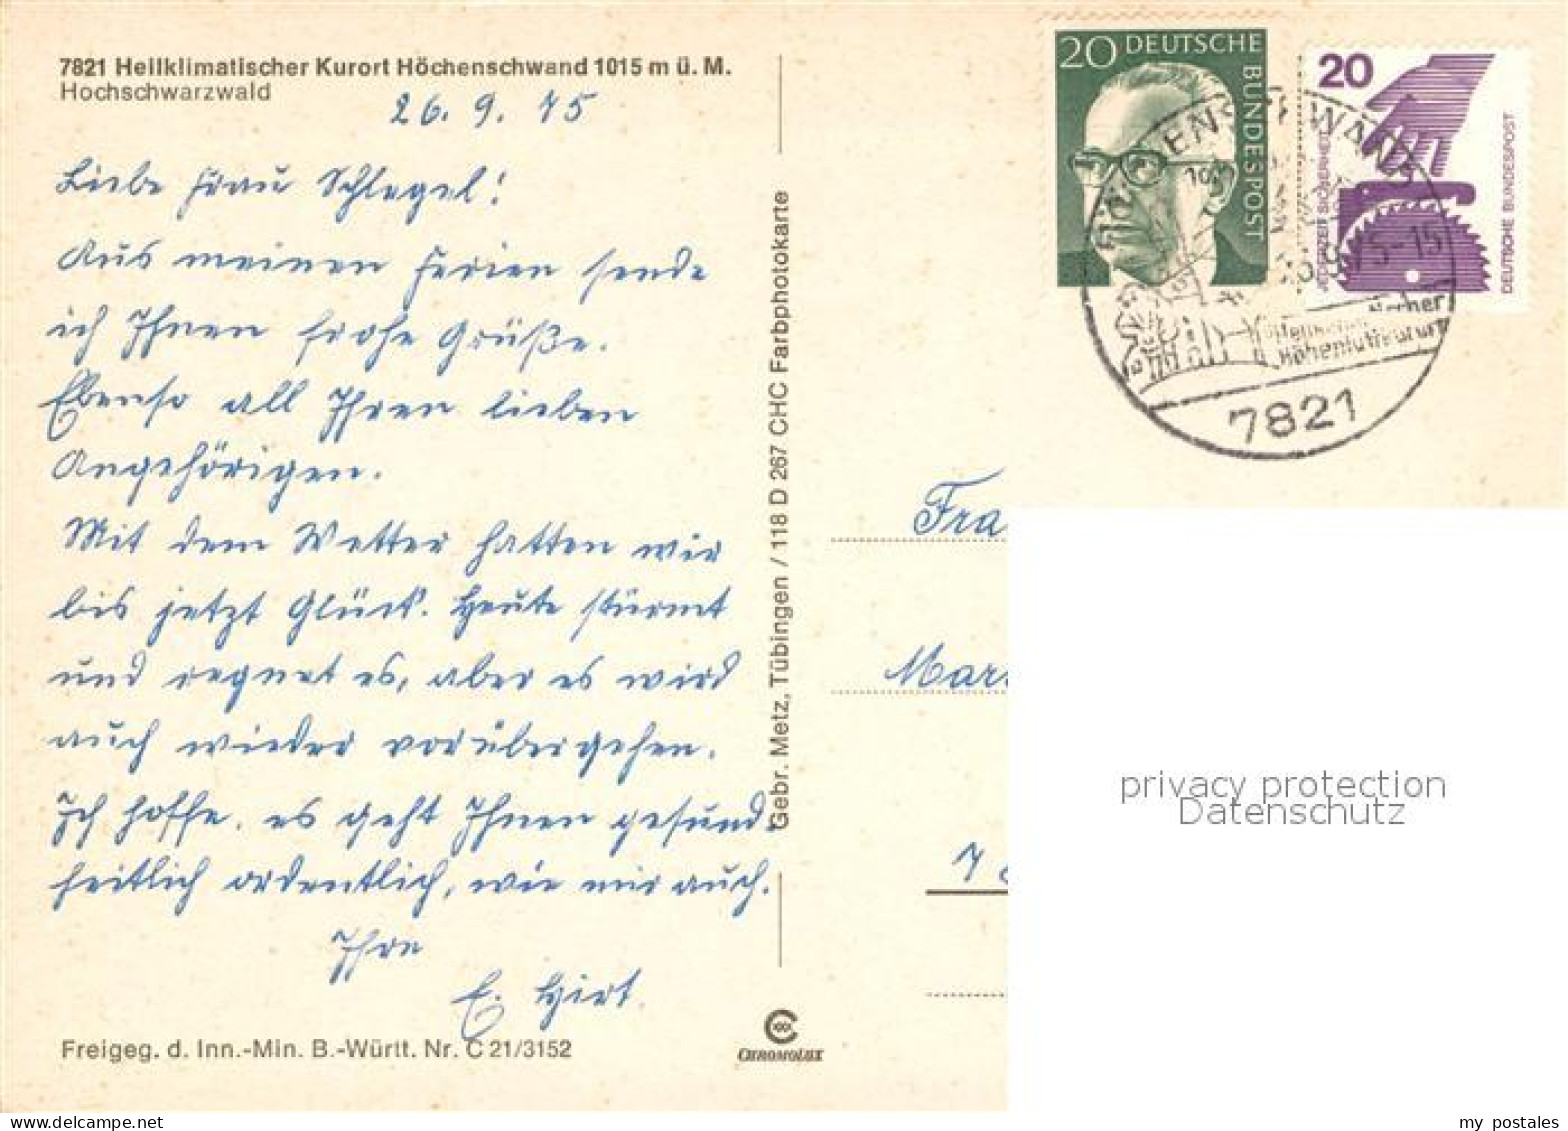 7821 Heilklimatischer Kurort Höchenschwand 1015 m ü. M.
Hochschwarzwald
26. 9. 75
Liebe Frau Schlegel!
Aus meinen Ferien sende
ich Ihnen frohe Grüße.
Ebenso all Ihren lieben
Angehörigen.
Mit dem Wetter hatten wir
bis jetzt Glück. Heute stürmt
und regnet es, aber es wird
auch wieder vorübergehen.
Ich hoffe, es geht Ihnen gesund-
heitlich ordentlich, wie mir auch.
Ihre
E. Hirt.
Freigeg. d. Inn.-Min. B.-Württ. Nr. C 21/3152
Gebr. Metz, Tübingen / 118 D 267 CHC Farbphotokarte
CHROMOLUX
20 DEUTSCHE BUNDESPOST
20
JEDERZEIT SICHERHEIT
DEUTSCHE BUNDESPOST
7821
Fra
Mar
7
privacy protection
Datenschutz
my postales